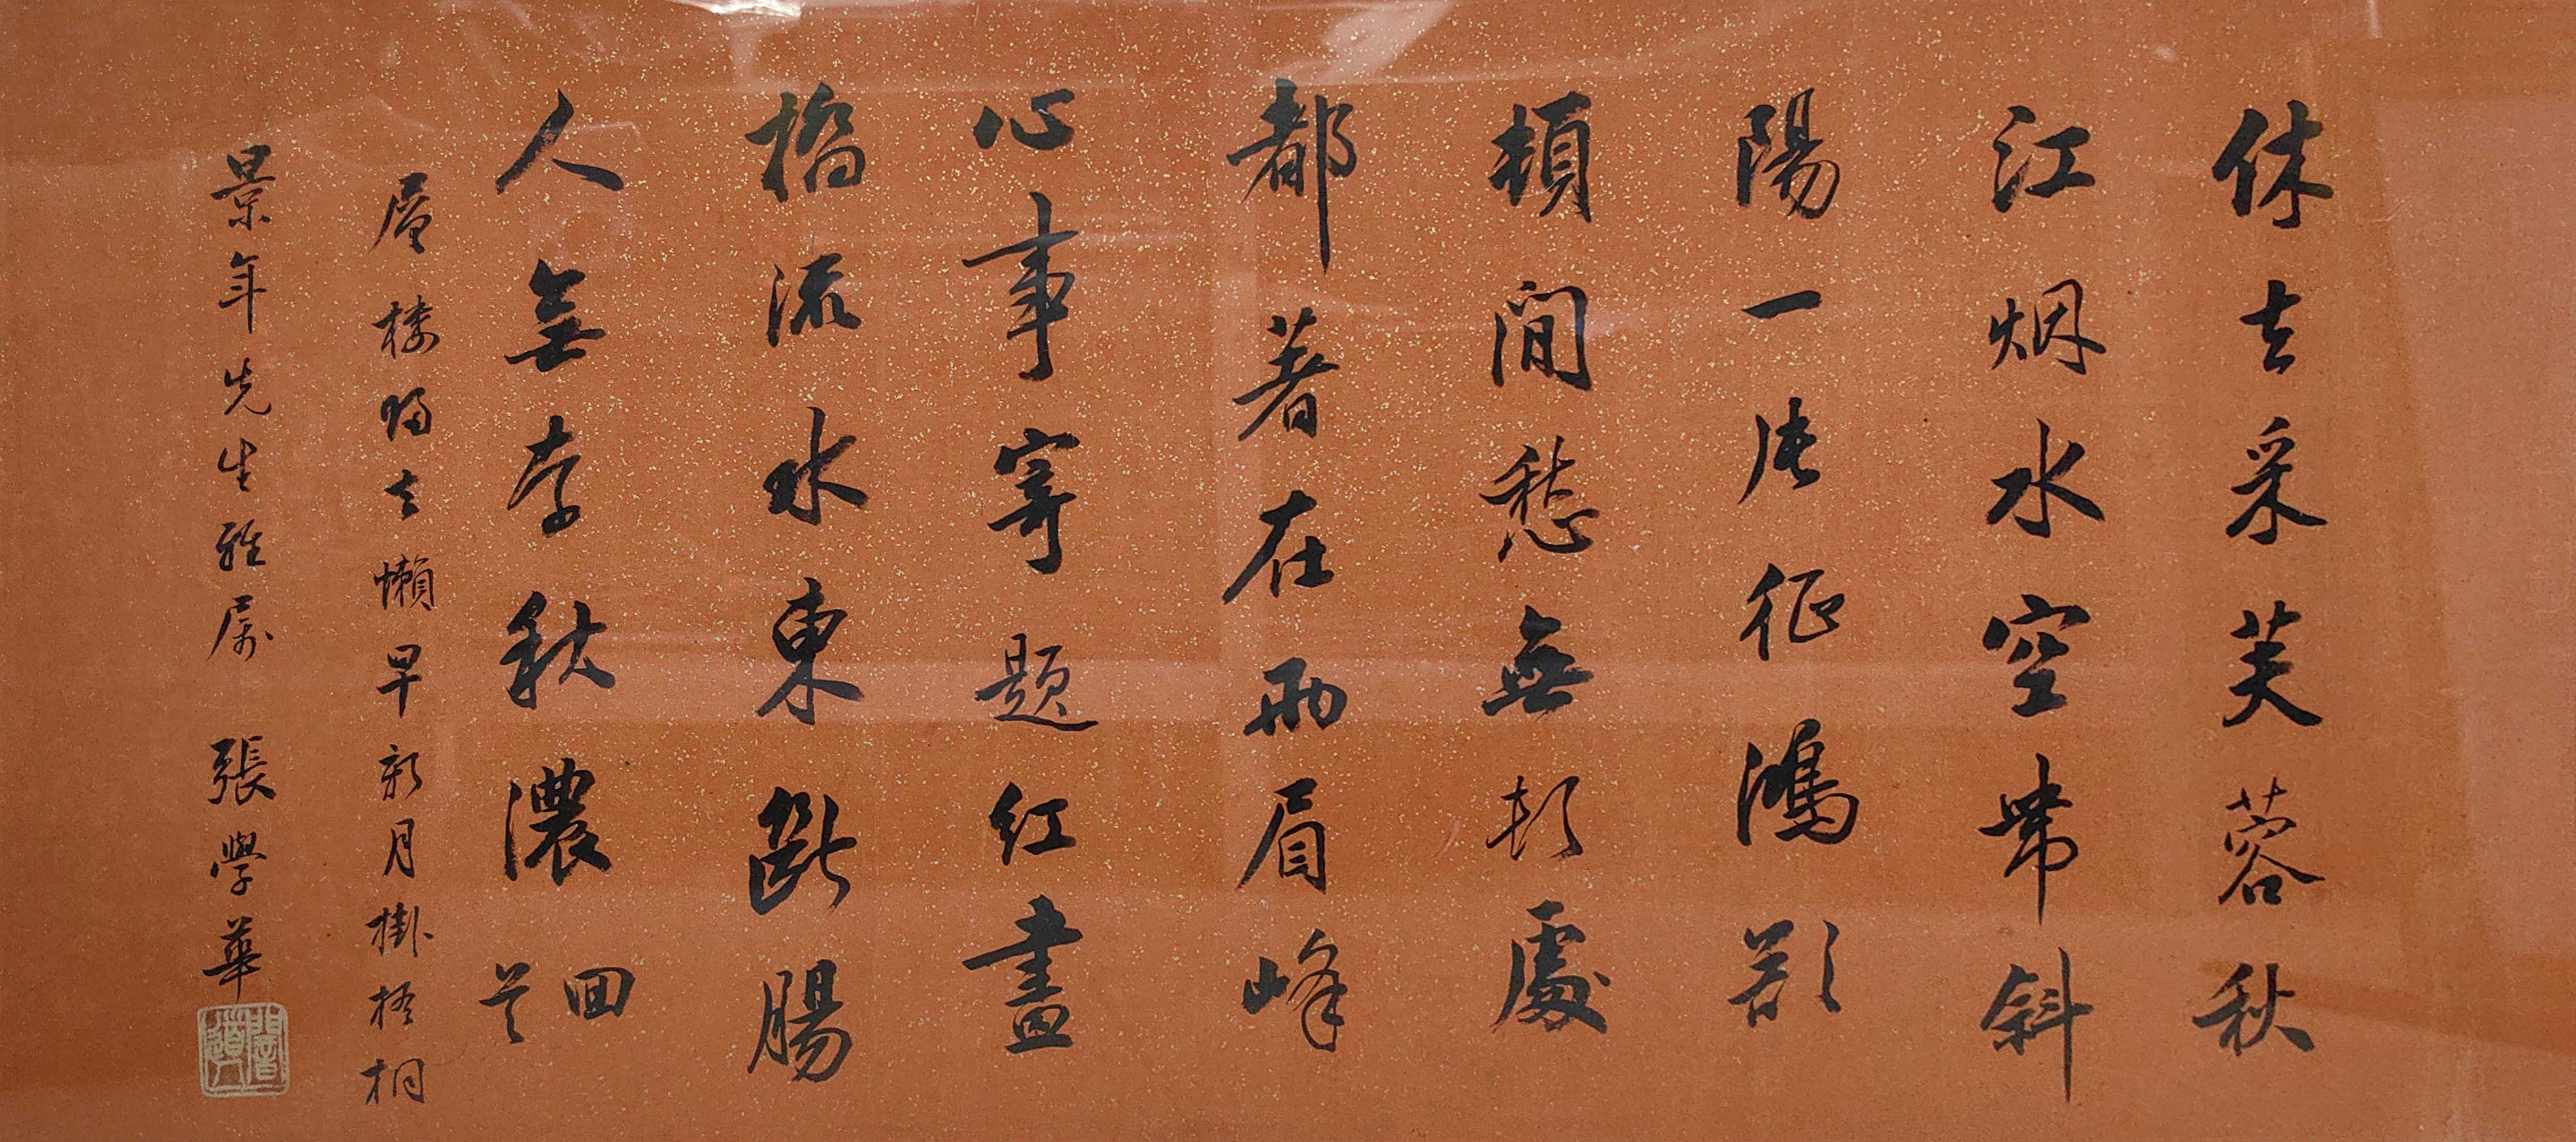 休去采芙蓉秋
江烟水空帶斜
陽一片征鴻欲
頓閒愁無頓處
都著在兩眉峰
心事寄題紅畫
橋流水東斷腸
人無奈秋濃回首
層樓歸去懶早新月掛梧桐
景年先生雅屬 張學華
闇道人